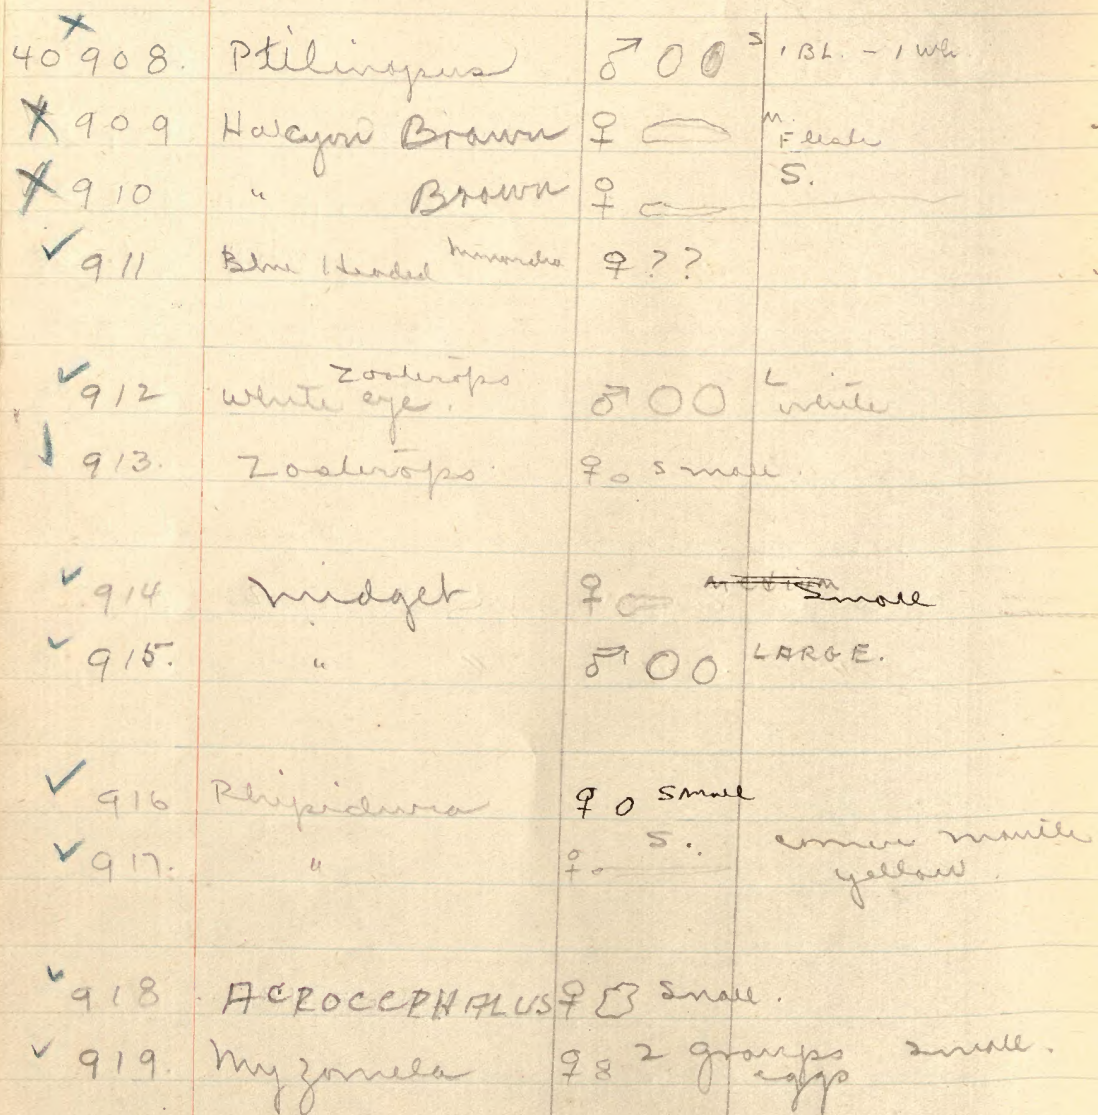 40908. Ptilinopus ♂ S 1 BL. - 1 Wh.
909 Halcyon Brown ♀ M. Flesh
910 " Brown ♀ S.
911 Blue Headed ♀ ??
Zosterops
912 White eye. ♂ L white
913. Zosterops ♀ small.
914 Midget ♀ medium small
915. " ♂ LARGE.
916 Rhipidura ♀ small
917. " ♀ S. corner mouth
yellow.
918 ACROCEPHALUS ♀ small.
919. Myzomela ♀ 2 groups small.
eggs